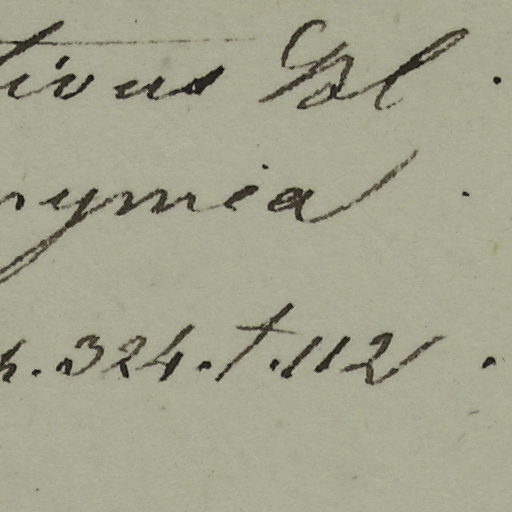 tivus Bl.
nymia.
h. 324. t. 112.